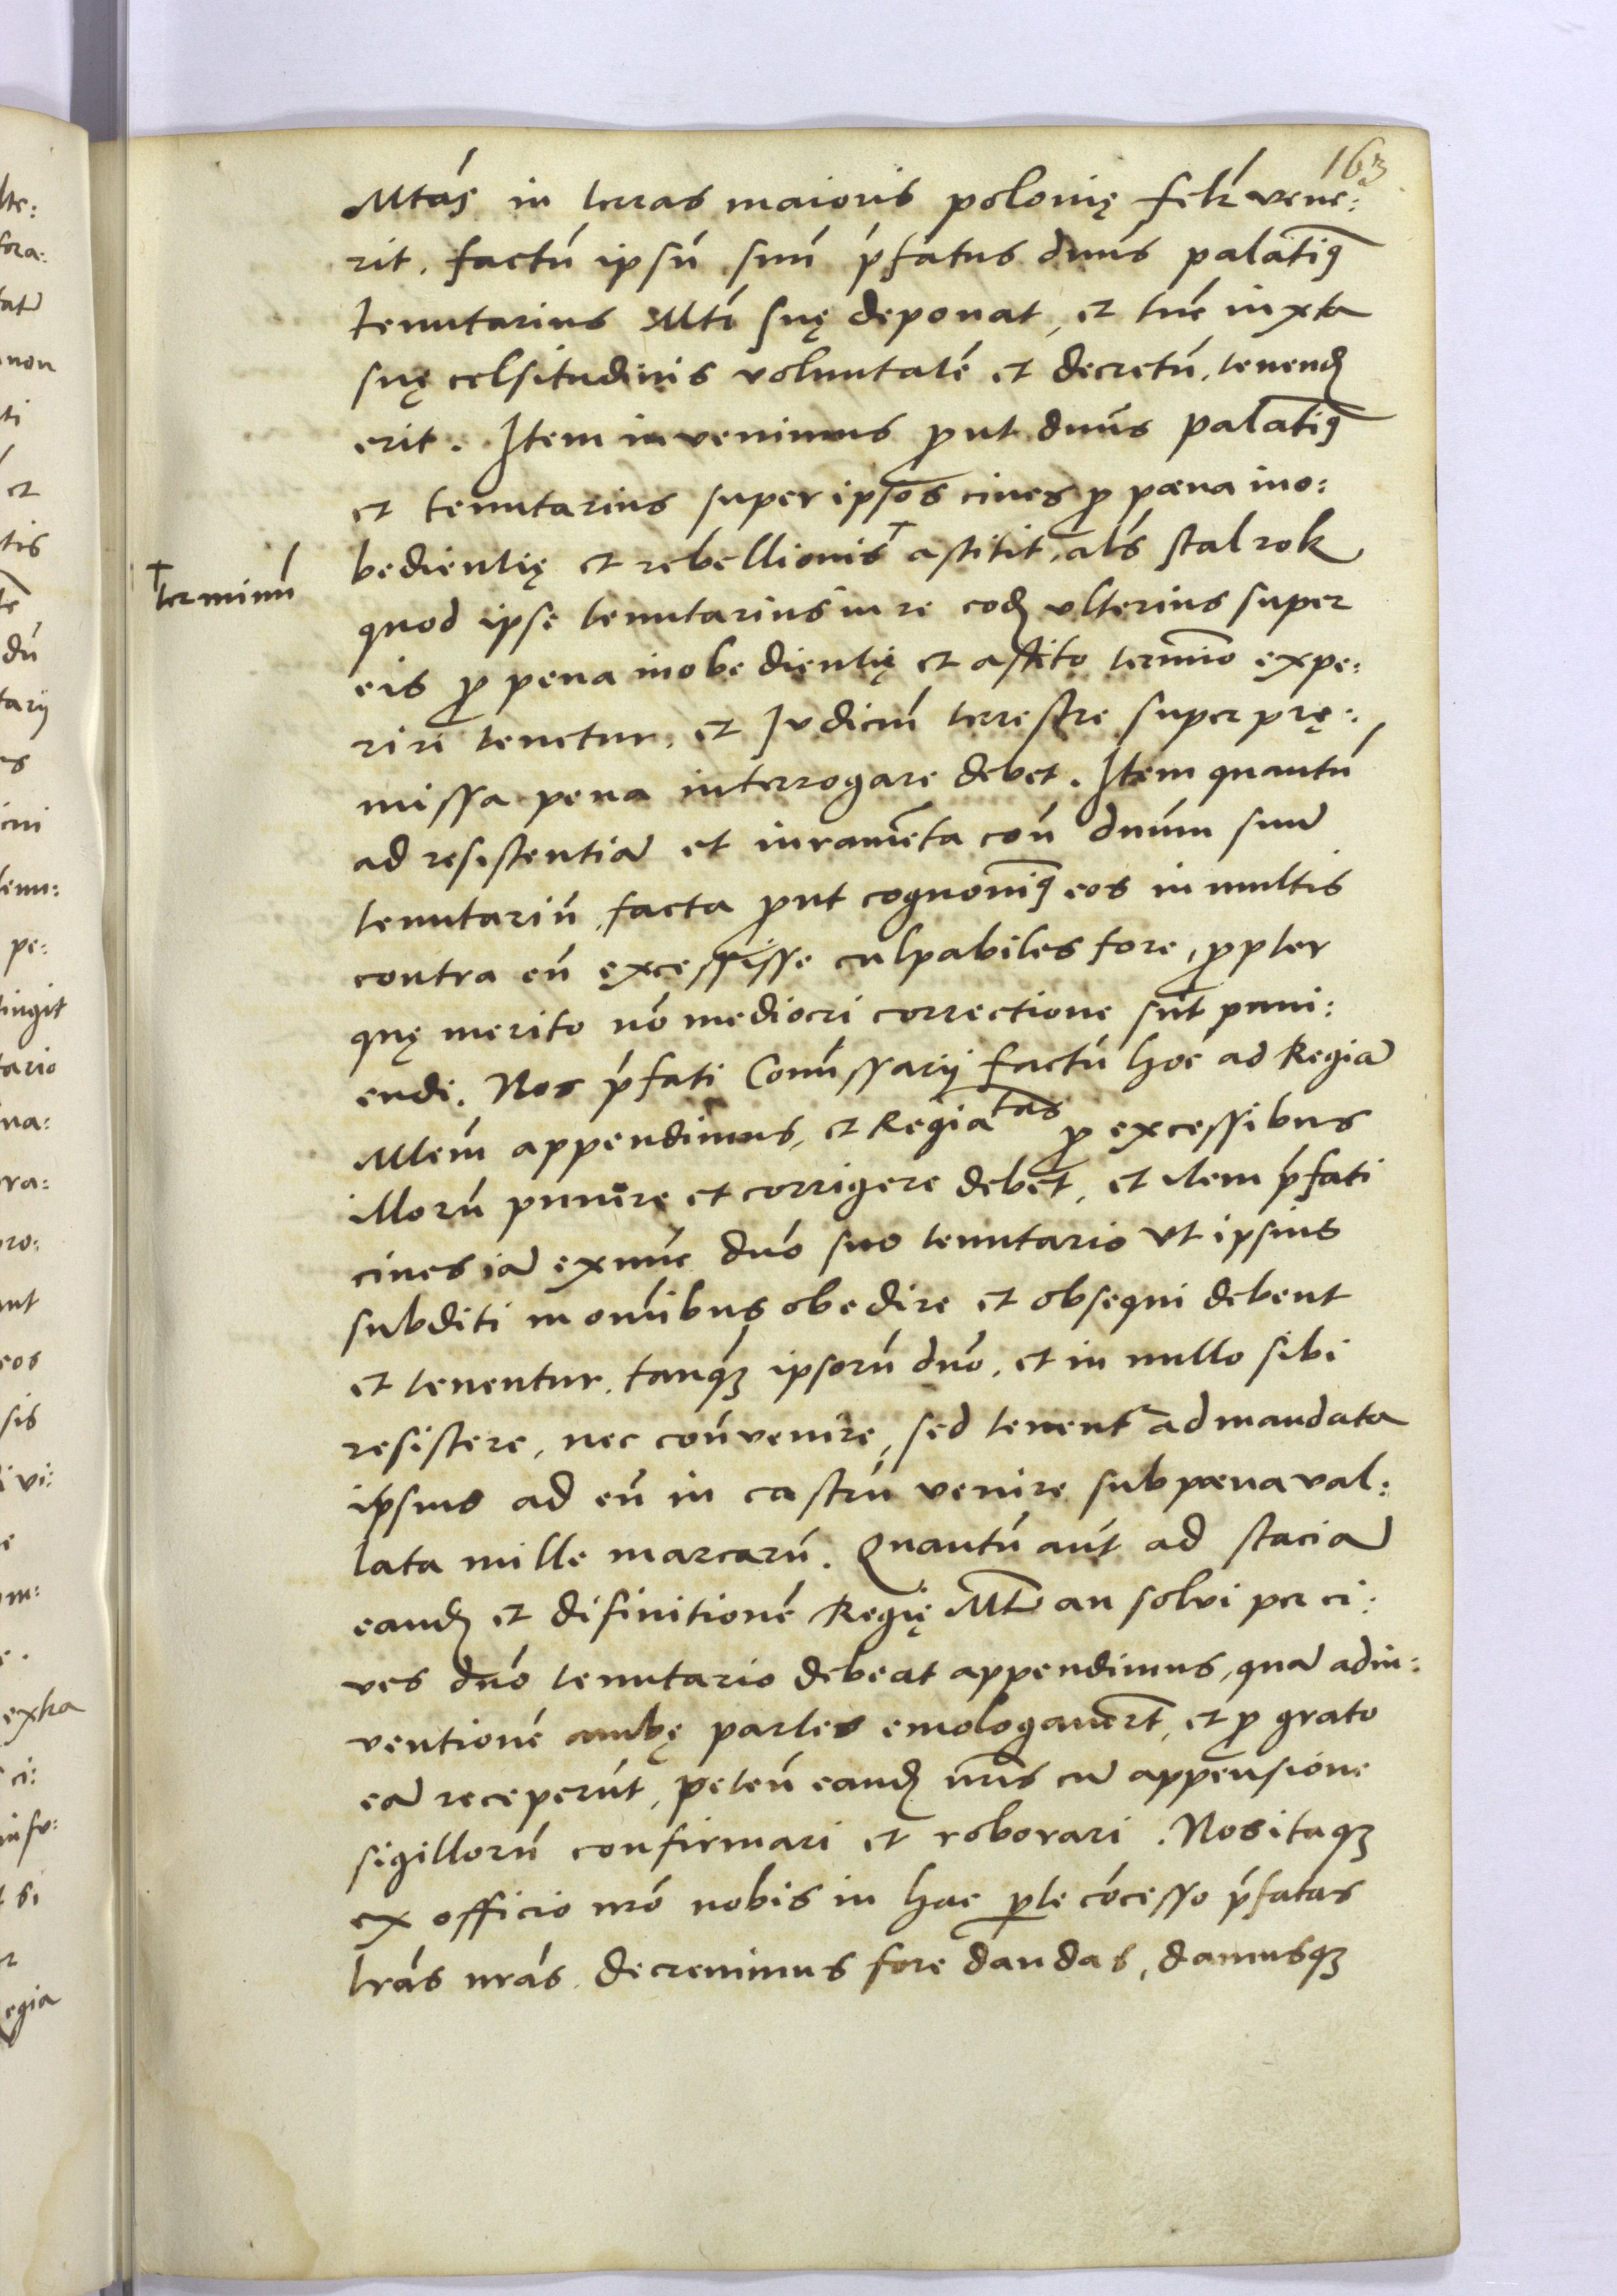 163
Mtás in terras maioris polonię felr vene:
rit. factū ipsū suū pfatus dnus palatiꝰ
tenutarius Mti suę deponat, et tuc iuxta
suę celsitudinis voluntatē et decretū, tenend
erit. Item invenimus put dnus palatiꝰ
et tenutarius super ipsos cives p pœna ino:
bedientię et rebellionis† astitit, als stal rok
†terminū
quod ipse tenutarius iure eod ulterius super
eis p pena inobedientię et astito termīo expe:
riri tenetur, et Judiciū terrestre super prę:
missa pena interrogare debet. Item quantū
ad resistentiā et iuramēta con dnum suū
tenutariū, facta put cognovimꝰ eos in multis
contra eū excessisse culpabiles fore, ppter
quę merito nō mediocri correctione sūt puni:
endi. Nos pfati Comissarij factū hoc ad Regiā
Mtem appendimus, et Regia tas p excessibus
illorū punire et corrigere debet, et item pfati
cives iā exnūc dno suo tenutario ut ipsius
subditi in omībus obedire et obsequi debent
et tenentur, tanqꝫ ipsorū dno, et in nullo sibi
resistere, nec convenire, sed tenent ad mandata
ipsius ad eū in castrū venire sub pœna val:
lata mille marcarū. Quantū aūt ad staciā
eand et difinitionē Regię Mti an solvi per ci:
ves dno tenutario debeat appendimus, quā adin:
ventionē ambę partes emologaverūt, et p grato
eā receperūt, peten eand nris cū appensione
sigillorū confirmari et roborari. Nos itaqꝫ
ex officio nro nobis in hac pte cōcesso pfatas
lras nras decrevimus fore dandas, damusqꝫ